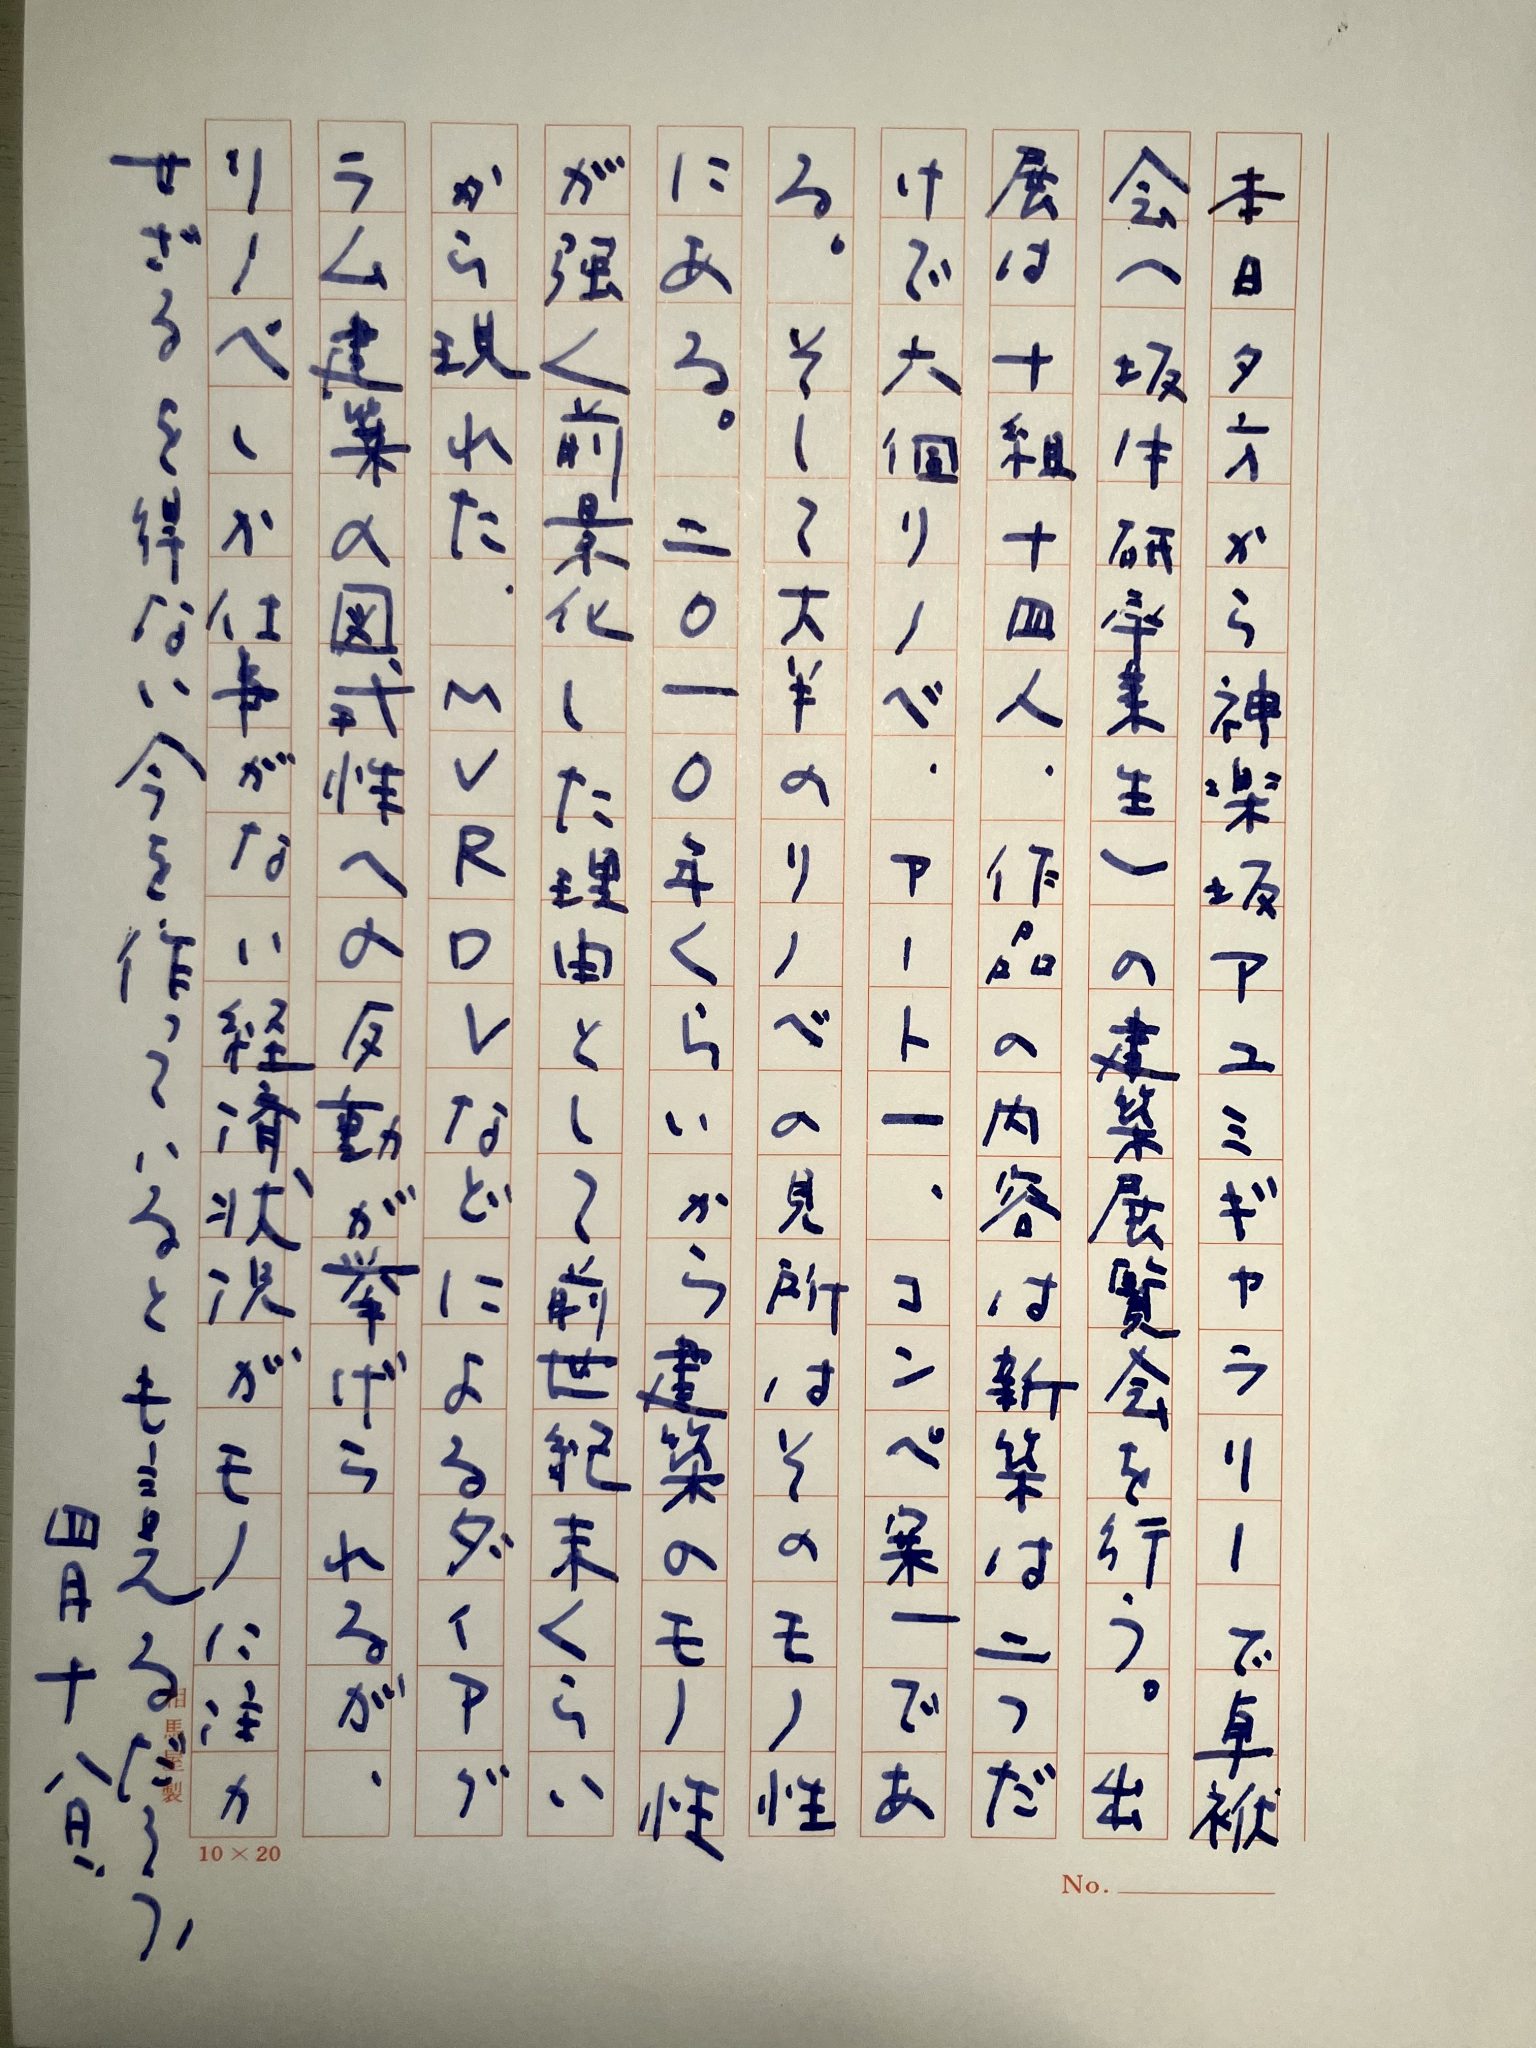 本日夕方から神楽坂アユミギャラリーで卓袱
会(坂牛研卒業生)の建築展覧会を行う。出
展は十組十四人、作品の内容は新築は二つだ
けで六個リノベ、アート一、コンペ案一であ
る。そして大半のリノベの見所はそのモノ性
にある。二〇一〇年くらいから建築のモノ性
が強く前景化した理由として前世紀末くらい
から現れた、MVRDVなどによるダイアグ
ラム建築の図式性への反動が挙げられるが、
リノベしか仕事がない経済状況がモノに注力
せざるを得ない今を作っているとも言えるだろう、
四月十八日、
相馬屋製
10×20
No.